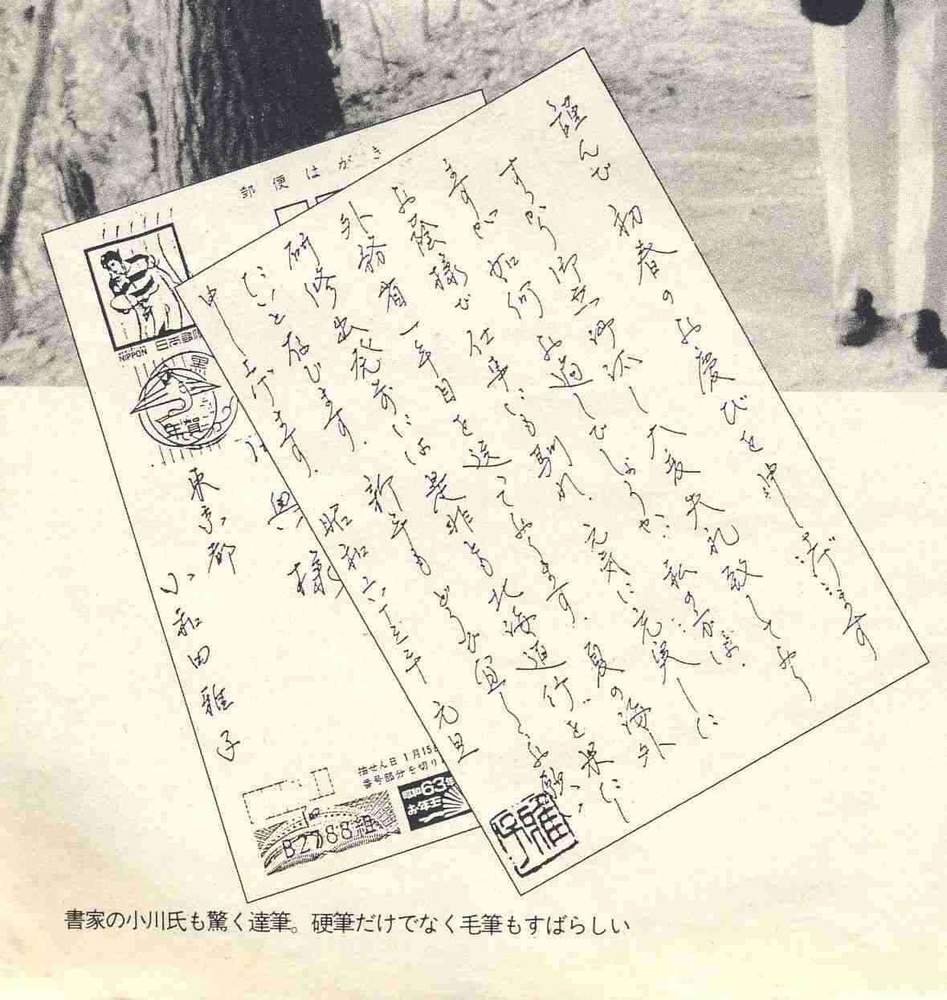 郵便はがき
NIPPON
年賀
様
東京都
小和田雅子
抽せん日 1月15
番号部分を切り
昭和63年
お年玉
B2788組
謹んで初春のお慶びを申し上げます
すっかり御無沙汰し大変失礼致しており
ますが如何お過しでしょうか。私の方は、
お蔭様で仕事にも馴れ、元気に充実した
外務省一年目を送っております。夏の海外
研修出発前には是非とも北海道行を果し
たいと存じます。新年もどうぞ宜しくお願い
申し上げます。
昭和六十三年 元旦
書家の小川氏も驚く達筆。硬筆だけでなく毛筆もすばらしい